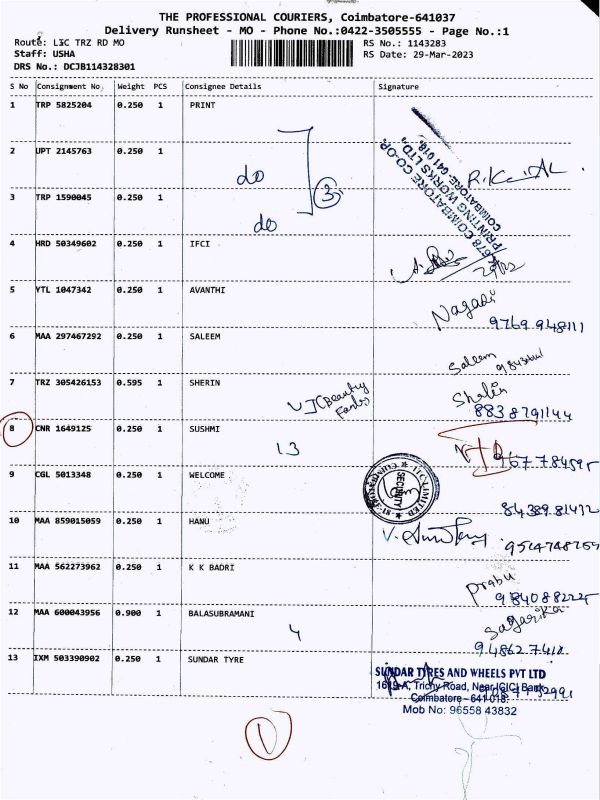 THE PROFESSIONAL COURIERS, Coimbatore-641037
Delivery Runsheet - MO - Phone No.:0422-3505555 - Page No.:1
Route: LIC TRZ RD MO RS No.: 1143283
Staff: USHA RS Date: 29-Mar-2023
DRS No.: DCJB114328301
S No Consignment No Weight PCS Consignee Details Signature
1 TRP 5825204 0.250 1 PRINT
1678 COIMBATORE CO-OP.
PRINTING WORKS LTD.,
COIMBATORE: 641 018.
2 UPT 2145763 0.250 1 do
3
3 TRP 1590045 0.250 1 do
4 HRD 50349602 0.250 1 IFCI
5 YTL 1047342 0.250 1 AVANTHI
9769 948111
6 MAA 297467292 0.250 1 SALEEM Saleem
7 TRZ 305426153 0.595 1 SHERIN
8838791144
8 CNR 1649125 0.250 1 SUSHMI
13
9 CGL 5013348 0.250 1 WELCOME
SECURITY
10 MAA 859015059 0.250 1 HANU
11 MAA 562273962 0.250 1 K K BADRI Prabu
12 MAA 600043956 0.900 1 BALASUBRAMANI Sagarika
4
13 IXM 503390902 0.250 1 SUNDAR TYRE
SUNDAR TYRES AND WHEELS PVT LTD
1619-A, Trichy Road, Near ICICI Bank
Coimbatore - 641 018.
Mob No: 96558 43832
1